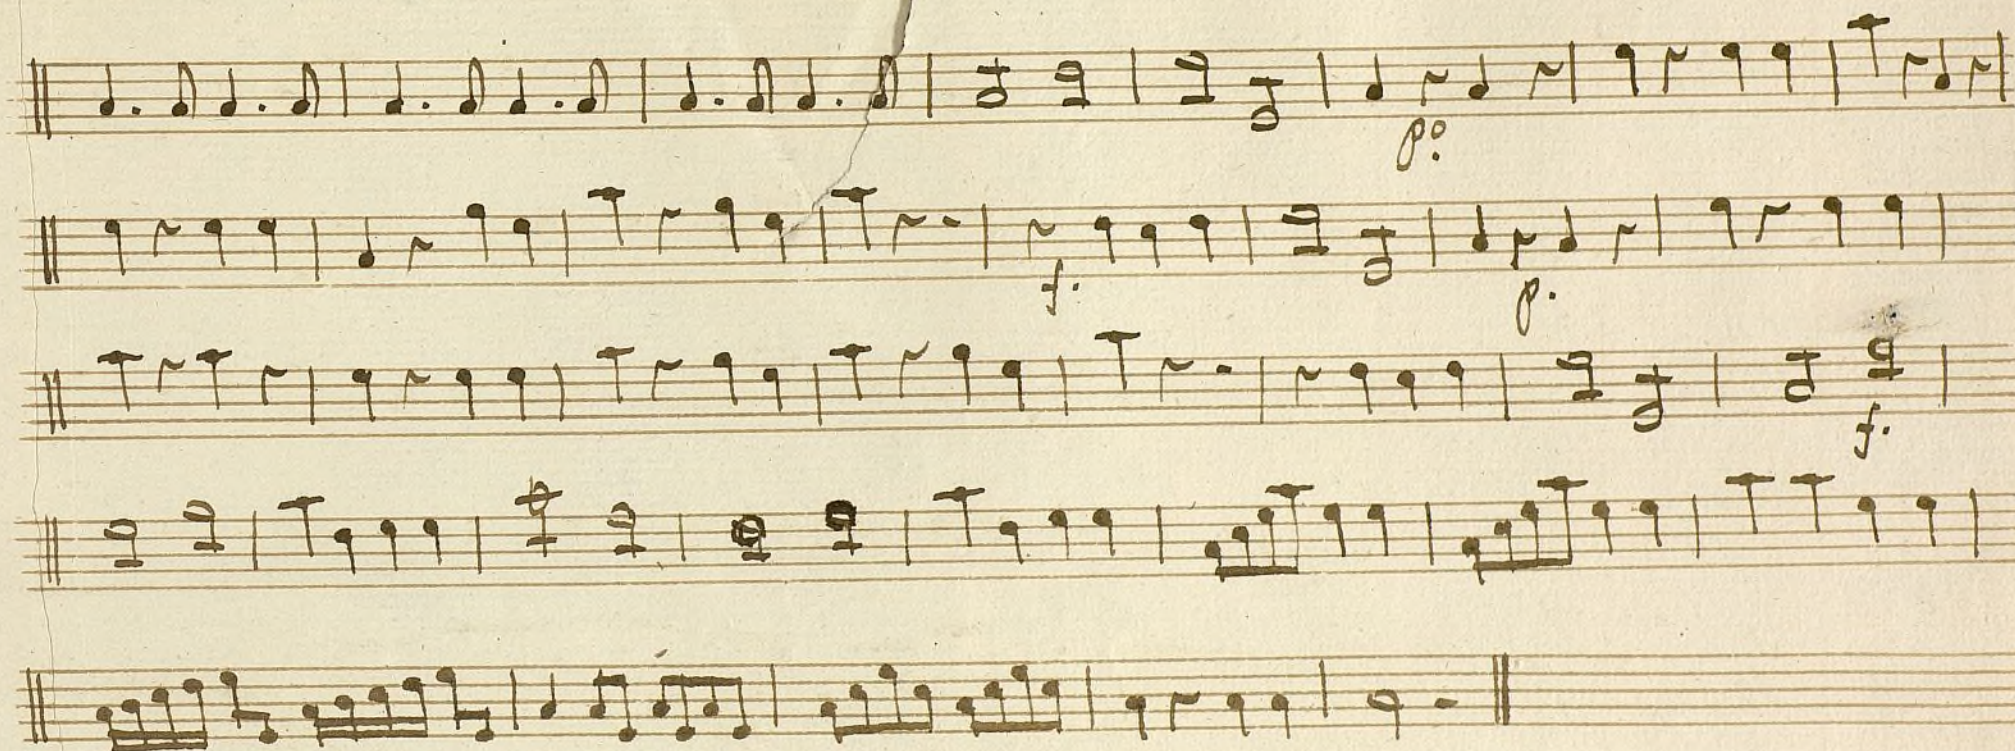 po.
f. p.
f.